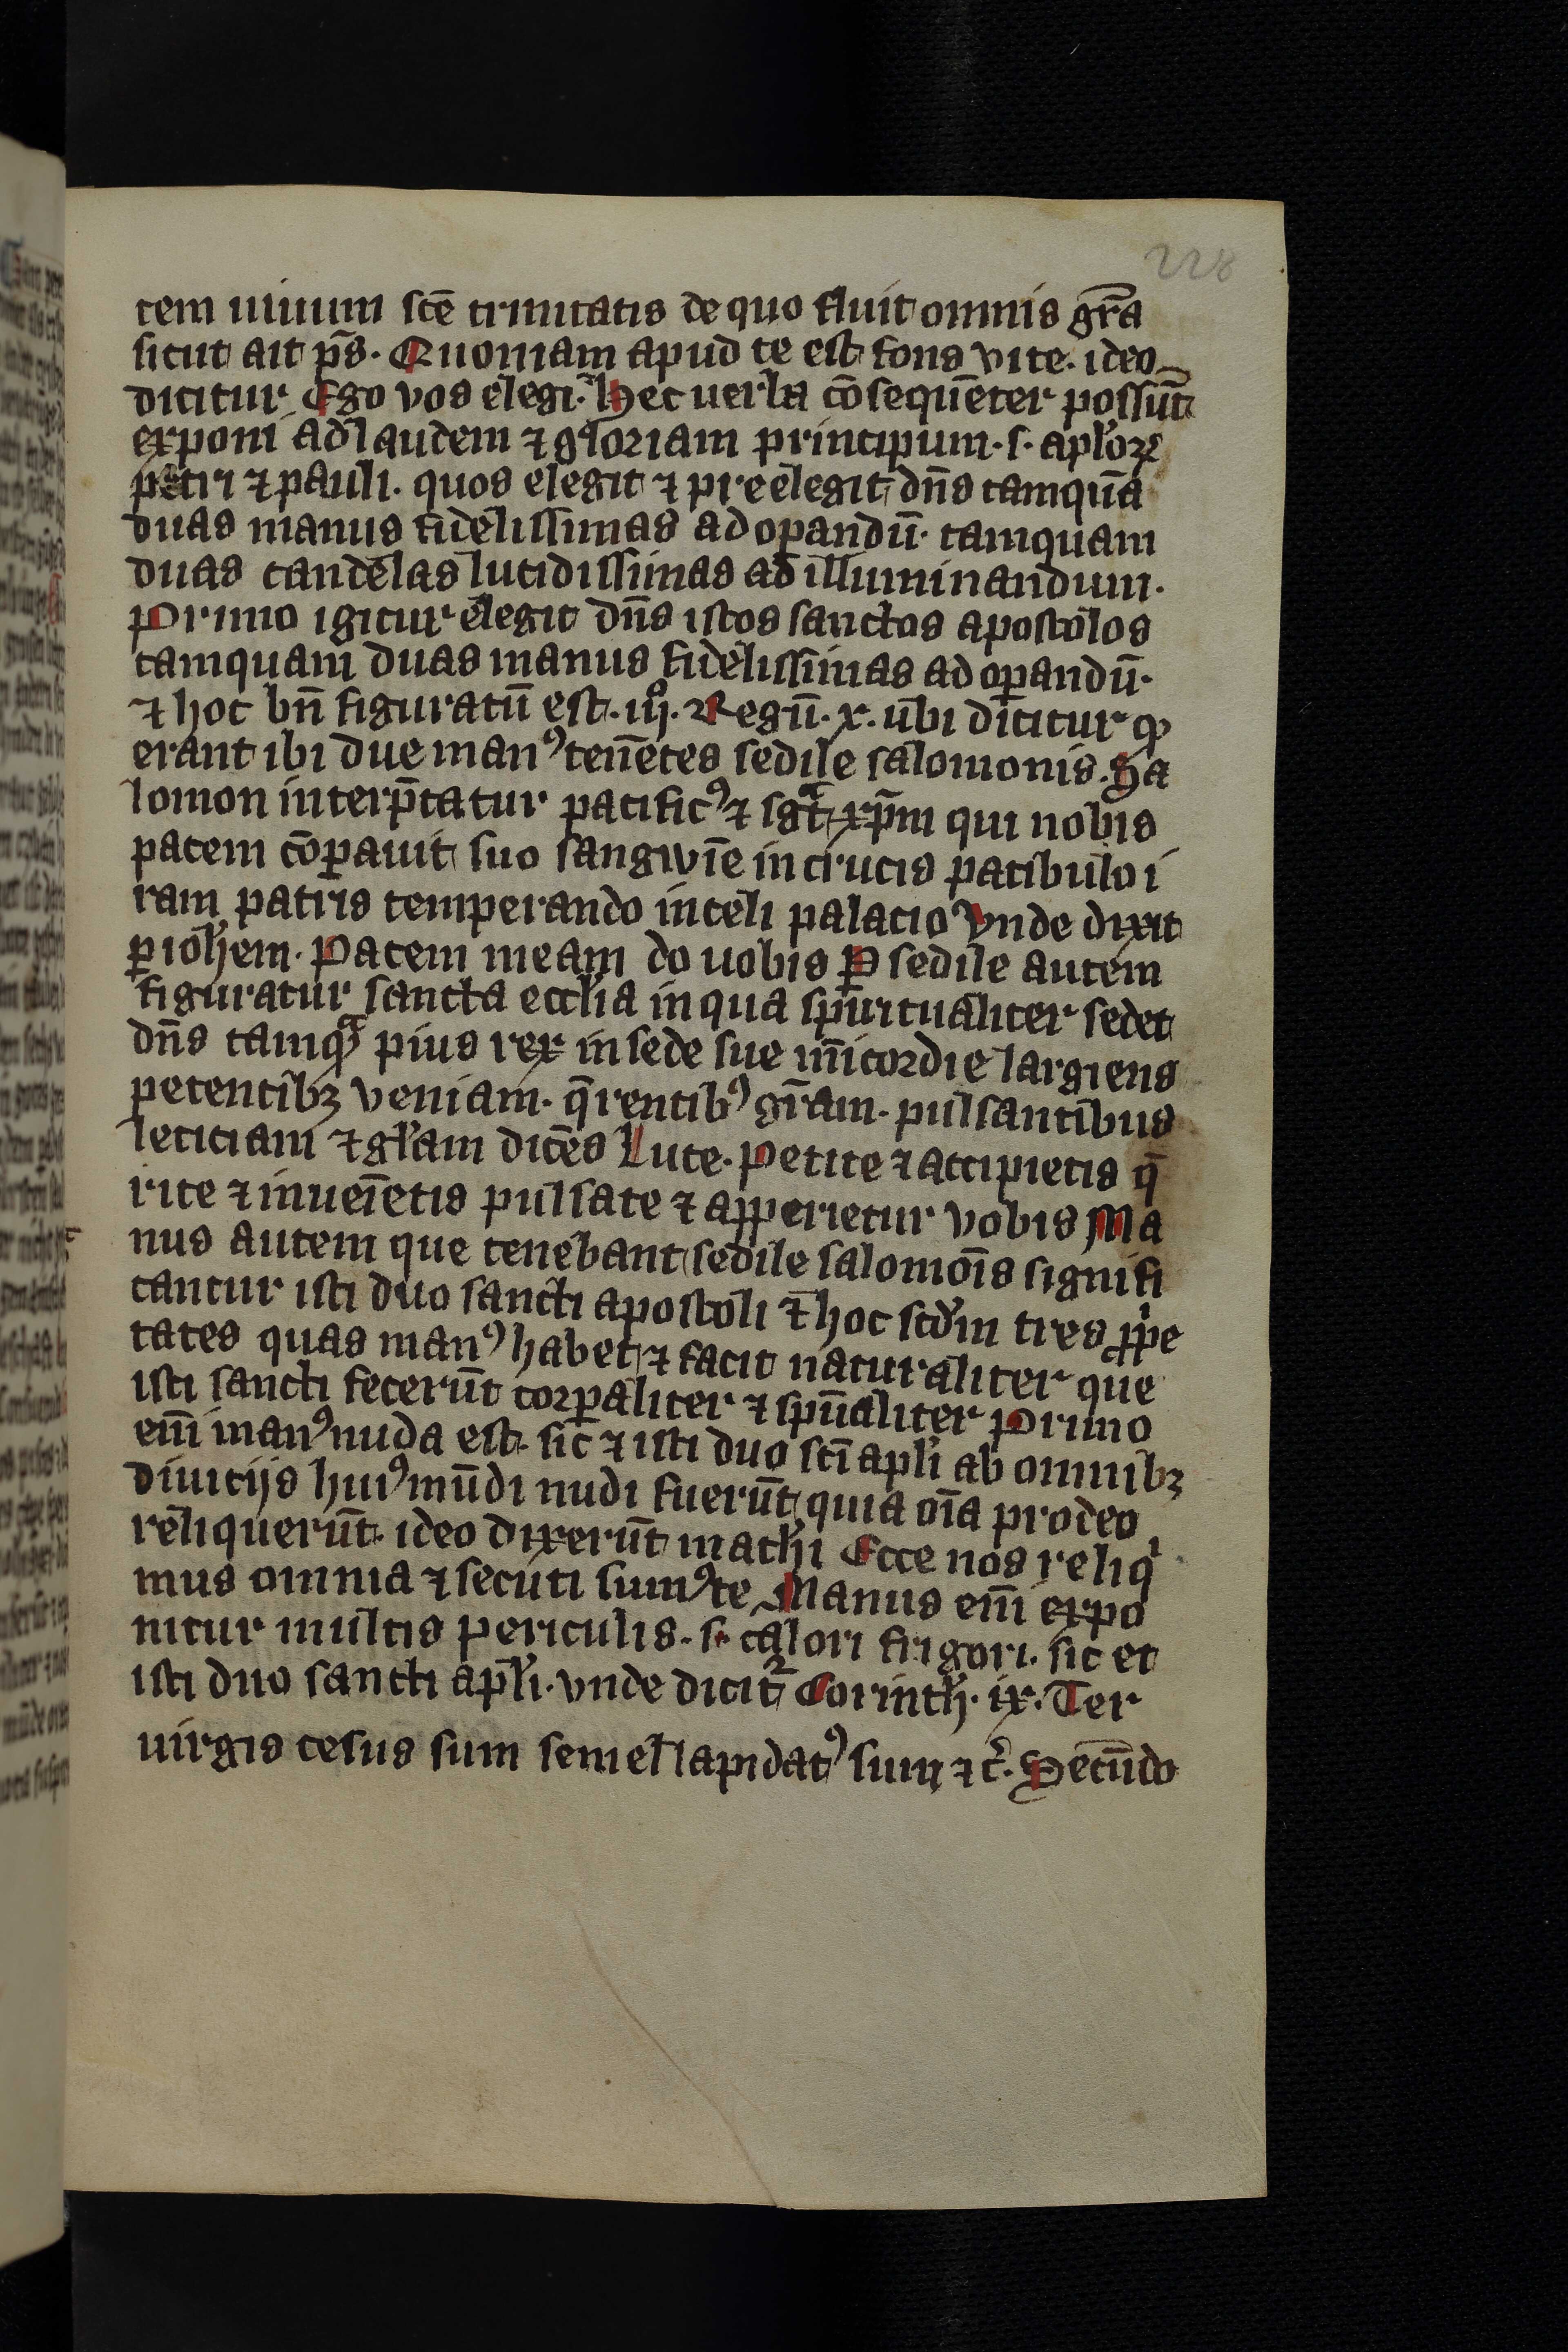 228
tem uiuum scē trinitatis de quo fluit omnis gr̄a
sicut ait p̄s. Quoniam apud te est fons vite. ideo
dicitur Ego vos elegi. Hec uerba cōsequēter possūt
exponi ad laudem ⁊ gloriam principum .s. apl'oꝝ
petri ⁊ pauli. quos elegit ⁊ preelegit dn̄s tamquā
duas manus fidelissimas ad oꝑandū. tamquam
duas candelas lucidissimas ad illuminandum.
Primo igitur elegit dn̄s istos sanctos apostolos
tamquam duas manus fidelissimas ad oꝑandū.
⁊ hoc bn̄ figuratū est .iijͦ. Regū. x. ubi dicitur ꝙ
erant ibi due manꝰ tenētes sedile salomonis. Sa
lomon interp̄tatur pacificꝰ ⁊ sgͣt xp̄m qui nobis
pacem cōꝑauit suo sangwīe in crucis patibulo i
ram patris temperando in celi palacio Vnde dixit
ꝑ ioh'em. Pacem meam do uobis Ꝑ sedile autem
figuratur sancta eccl'ia in qua spiritualiter sedet
dn̄s tamqͣ pius rex in sede sue mīcordie largiens
petentibꝫ veniam. q̄rentibꝰ gr̄am. pulsantibus
leticiam ⁊ gl'am dicēs Luce. Petite ⁊ accipietis q̄
rite ⁊ inueīetis pulsate ⁊ apperietur vobis Ma
nus autem que tenebant sedile salomōis signifi
cantur isti duo sancti apostoli ⁊ hoc scd'm tres ꝓpͥe
tates quas manꝰ habet ⁊ facit naturaliter que
isti sancti fecerūt corꝑaliter ⁊ spūaliter Primo
enī manꝰ nuda est. sic ⁊ isti duo scī apl'i ab omnibꝫ
diuicijs huiꝰ mūdi nudi fuerūt quia oīa pro deo
reliquerūt. ideo dixerūt math'i Ecce nos reliqͥ
mus omnia ⁊ secuti sumꝰ te Manus enī expo
nitur multis periculis .s. calori frigori. sic et
isti duo sancti apl'i. vnde dicit᷑ Corinth'. ix. Ter
uirgis cesus sum semel lapidatꝰ sum ⁊ c̄. Secūdo